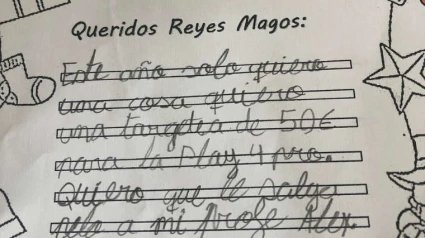 Queridos Reyes Magos:
Este año solo quiero
una cosa quiero
una targetea de 50€
para la Play 4 pro.
Quiero que le salga
pelo a mi profe Alex.